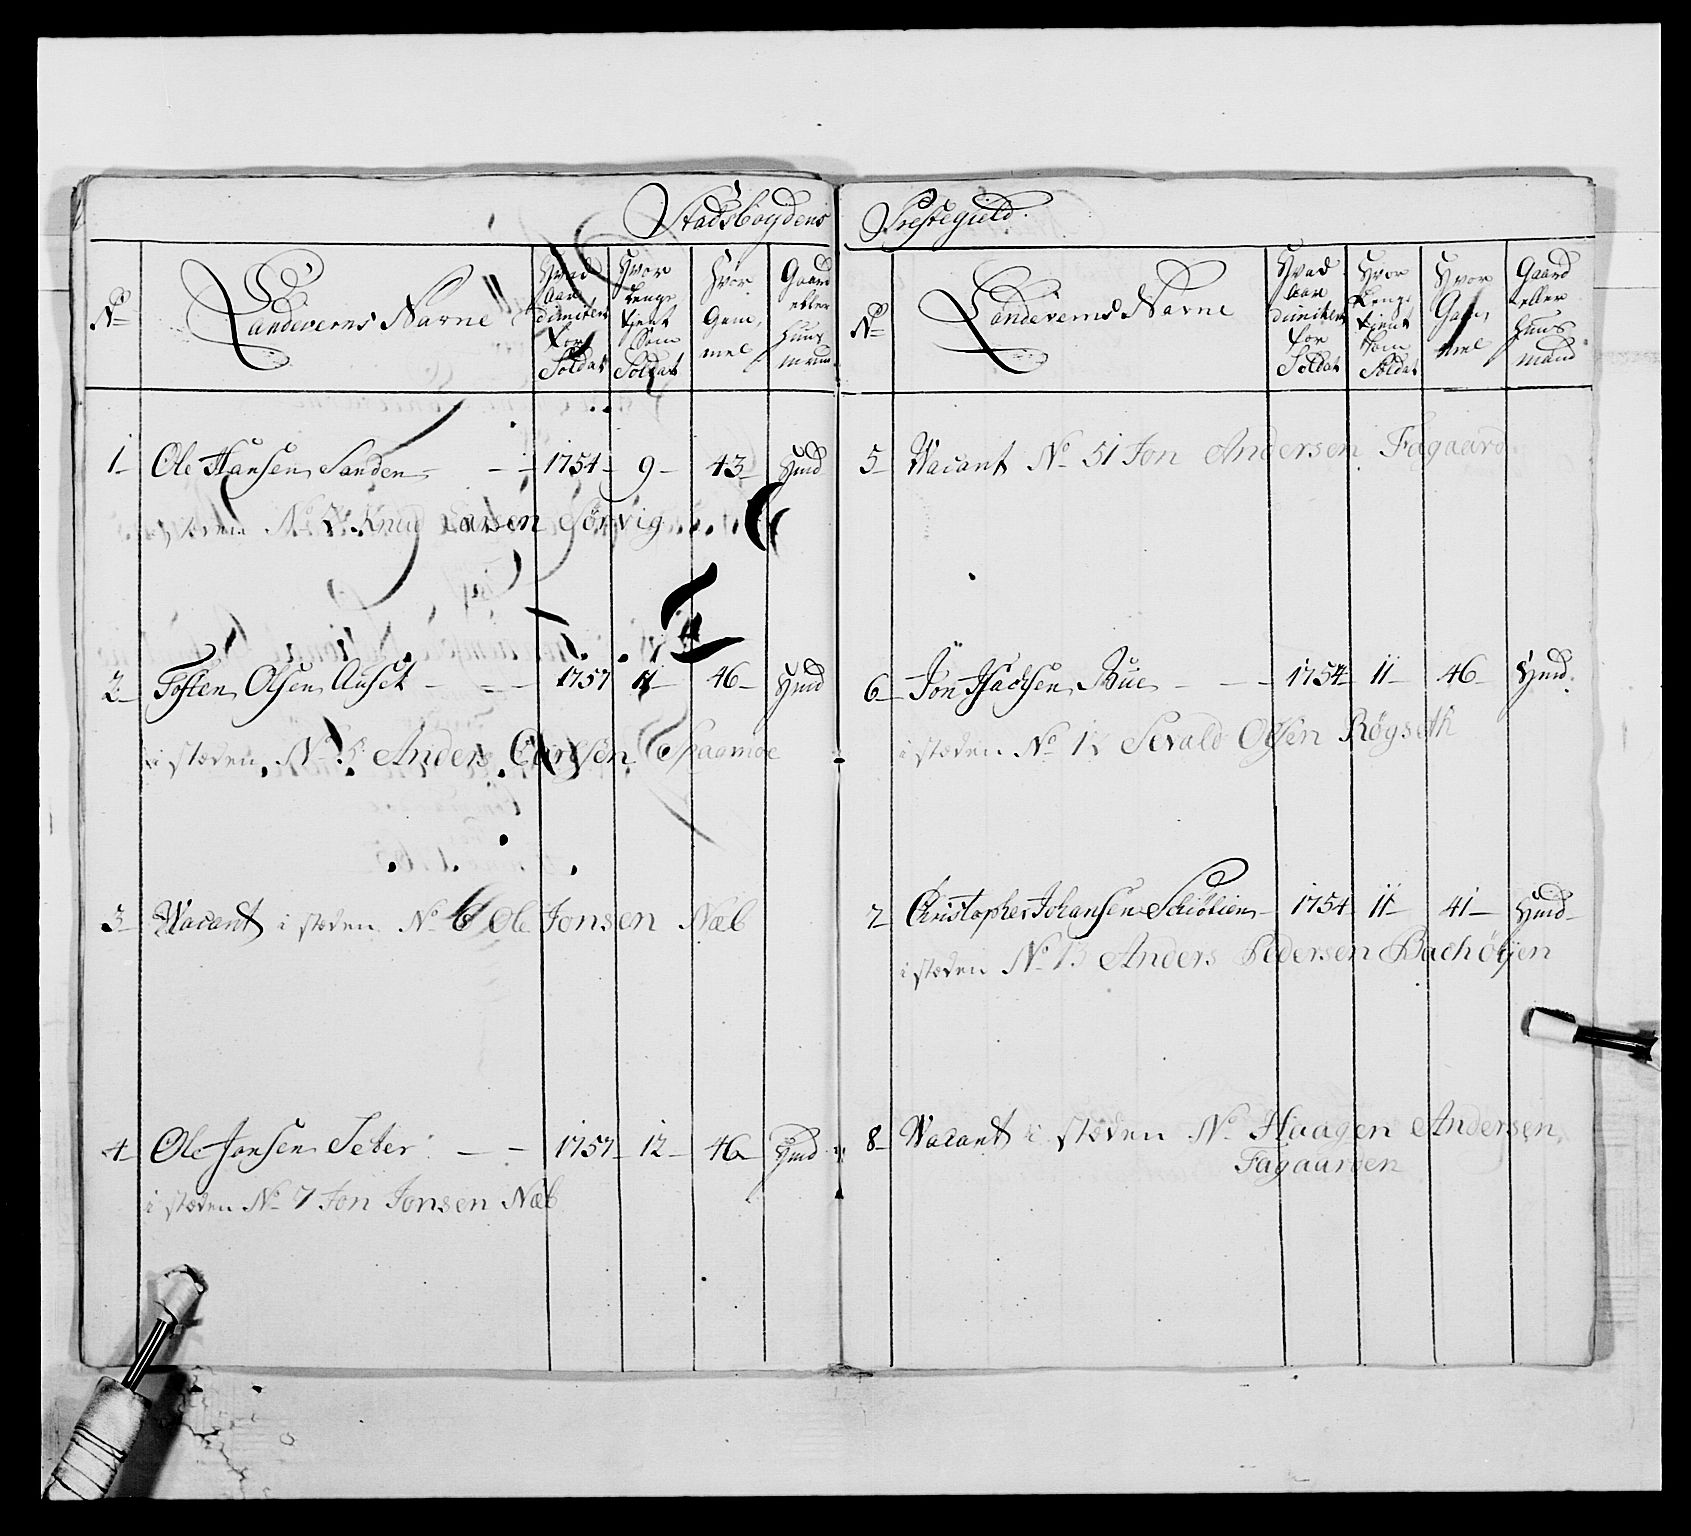 Stadsboydens Prestegield.
No
Landeverns Navne
Hvad
Aar
dimitert
for
Soldat
Hvor
Lenge
tient
Som
Soldat
Hvor
Gam,
mel
Gaard
eller
Huus
mand
1 Ole Hansen Sanden 1754 9 43 Hmd
i stæden No Knud Larsen Sørvig
2 Tosten Olsen Auset 1757 11 46 Hmd
i stæden No 5 Anders Carlsen Skaamoe
3 Vacant i stæden No 6 Ole Jonsen Næb
4 Ole Jonsen Seter 1757 12 46 Hmd
i stæden No 7 Jon Jonsen Næb
No
Landeverns Navne
Hvad
Aar
dimitert
for
Soldat
Hvor
Lenge
tient
som
Soldat
Hvor
Gam,
mel
Gaard
eller
Huus
mand
5 Vacant No 51 Jon Andersen Fagaard
6 Jon Isachsen Bue 1754 11 46 Hmd.
i stæden No Sevald Olsen Røgseth
7 Christopher Johansen Schiøtien 1754 11 41 Hmd
i stæden No Anders Pedersen Bachøyen
8 Vacant i stæden No Haagen Andersen,
Fagaarden